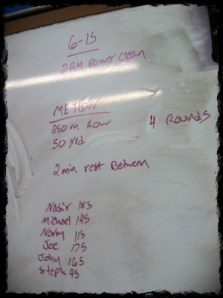 6-15
2RM Power Clean
METCON
250m Row
50 yrd
4 Rounds
2 min rest Between
Nasir 185
Michael 195
Norby 115
Joe 175
John 165
Steph 95